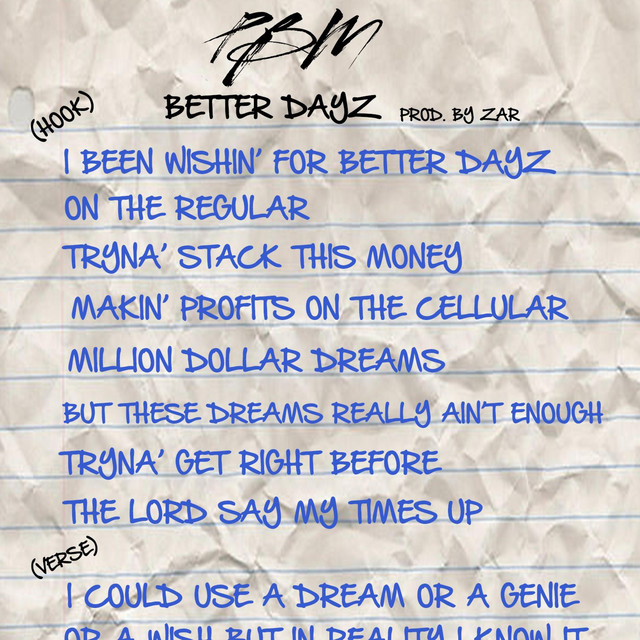 PBM
BETTER DAYZ PROD. BY ZAR
(HOOK)
I BEEN WISHIN' FOR BETTER DAYZ
ON THE REGULAR
TRYNA' STACK THIS MONEY
MAKIN' PROFITS ON THE CELLULAR
MILLION DOLLAR DREAMS
BUT THESE DREAMS REALLY AIN'T ENOUGH
TRYNA' GET RIGHT BEFORE
THE LORD SAY MY TIMES UP
(VERSE)
I COULD USE A DREAM OR A GENIE
OR A WISH BUT IN REALITY I KNOW IT